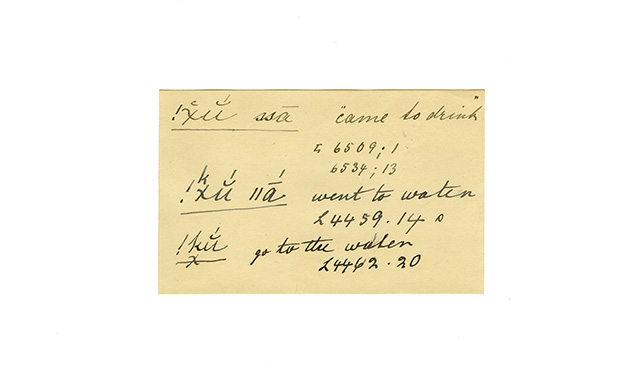 !x̌ŭ́ ssā "came to drink"
L 6509; 1
6534; 13
!kx̌ŭ́ ǁá̄ went to water
L4459.14 o
!kx̱ŭ́ go to the water
L4462.20